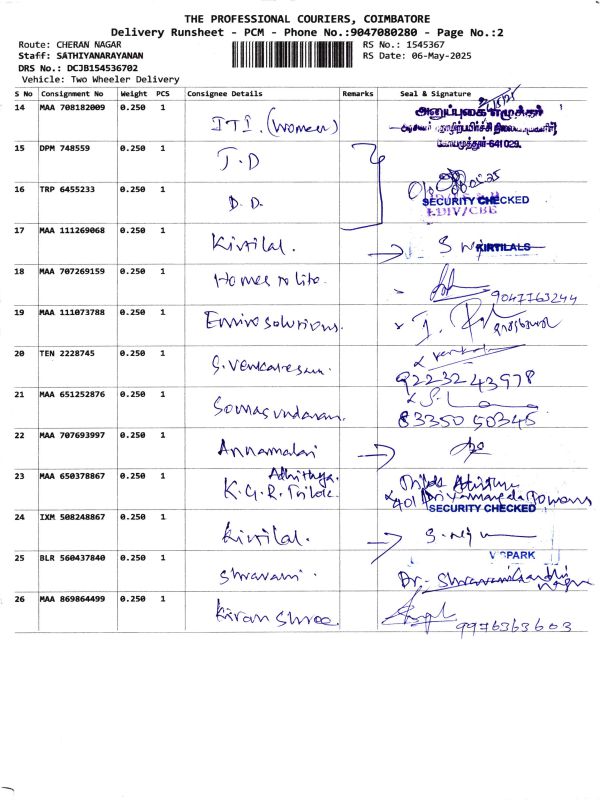 THE PROFESSIONAL COURIERS, COIMBATORE
Delivery Runsheet - PCM - Phone No.:9047080280 - Page No.:2
Route: CHERAN NAGAR
RS No.: 1545367
Staff: SATHIYANARAYANAN
RS Date: 06-May-2025
DRS No.: DCJB154536702
Vehicle: Two Wheeler Delivery
S No Consignment No Weight PCS Consignee Details Remarks Seal & Signature
14 MAA 708182009 0.250 1 ITI. (Women)
அனுப்புகை எழுத்தர்
கோயமுத்தூர்-641 029.
15 DPM 748559 0.250 1 J.D
16 TRP 6455233 0.250 1 D.D.
SECURITY CHECKED
EDIV/CBE
17 MAA 111269068 0.250 1 Kirtilal. KIRTILALS
18 MAA 707269159 0.250 1 9047763244
19 MAA 111073788 0.250 1 Enviro solutions.
20 TEN 2228745 0.250 1 S.Venkatesan.
92232 43978
21 MAA 651252876 0.250 1 Somasundaram.
83350 50345
22 MAA 707693997 0.250 1 Annamalai
23 MAA 650378867 0.250 1 Adhithya.
K.G.R. Tilde.
401 Priyamvada Towers
SECURITY CHECKED
24 IXM 508248867 0.250 1 Kirtilal.
PARK
25 BLR 560437840 0.250 1 Shravani. Dr. Shravani Gandhi
26 MAA 869864499 0.250 1 Kiran Shree. 9976363603